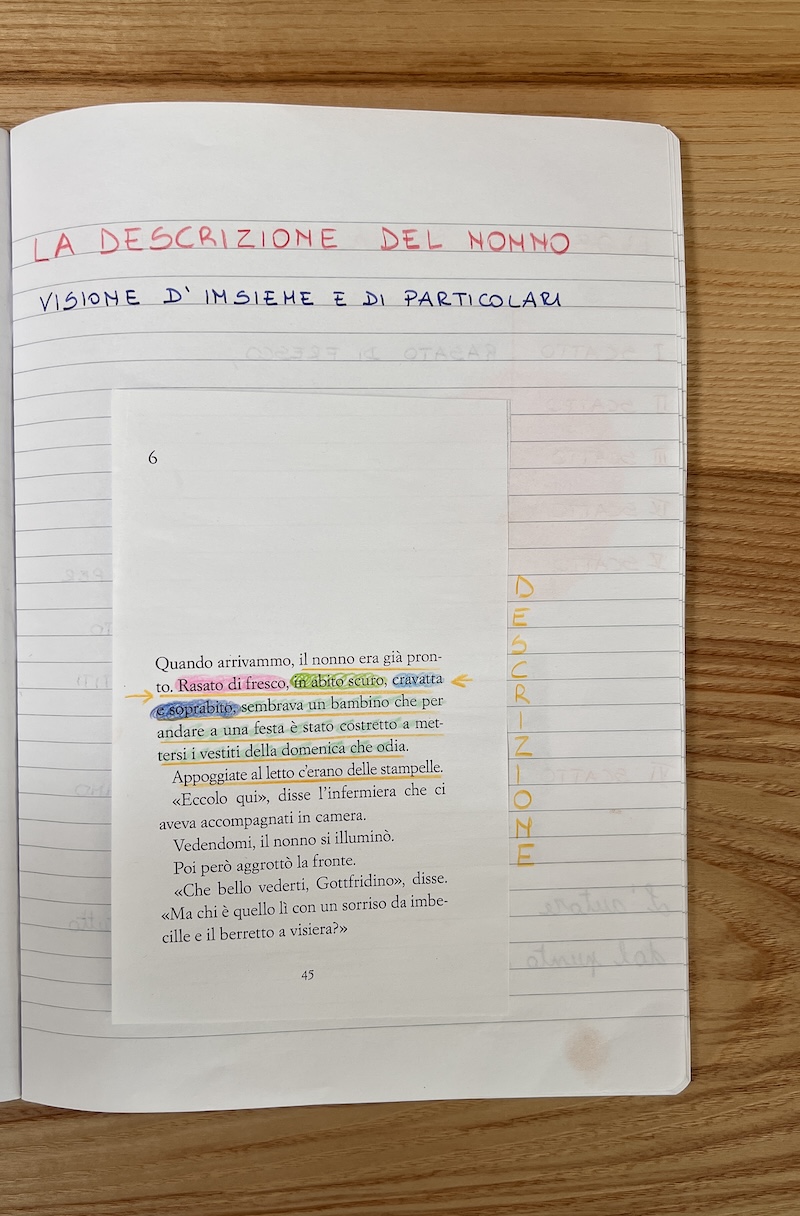 LA DESCRIZIONE DEL NONNO
VISIONE D' INSIEME E DI PARTICOLARI
6
Quando arrivammo, il nonno era già pron-
to. Rasato di fresco, in abito scuro, cravatta
e soprabito, sembrava un bambino che per
andare a una festa è stato costretto a met-
tersi i vestiti della domenica che odia.
Appoggiate al letto c'erano delle stampelle.
«Eccolo qui», disse l'infermiera che ci
aveva accompagnati in camera.
Vedendomi, il nonno si illuminò.
Poi però aggrottò la fronte.
«Che bello vederti, Gottfridino», disse.
«Ma chi è quello lì con un sorriso da imbe-
cille e il berretto a visiera?»
45
DESCRIZIONE